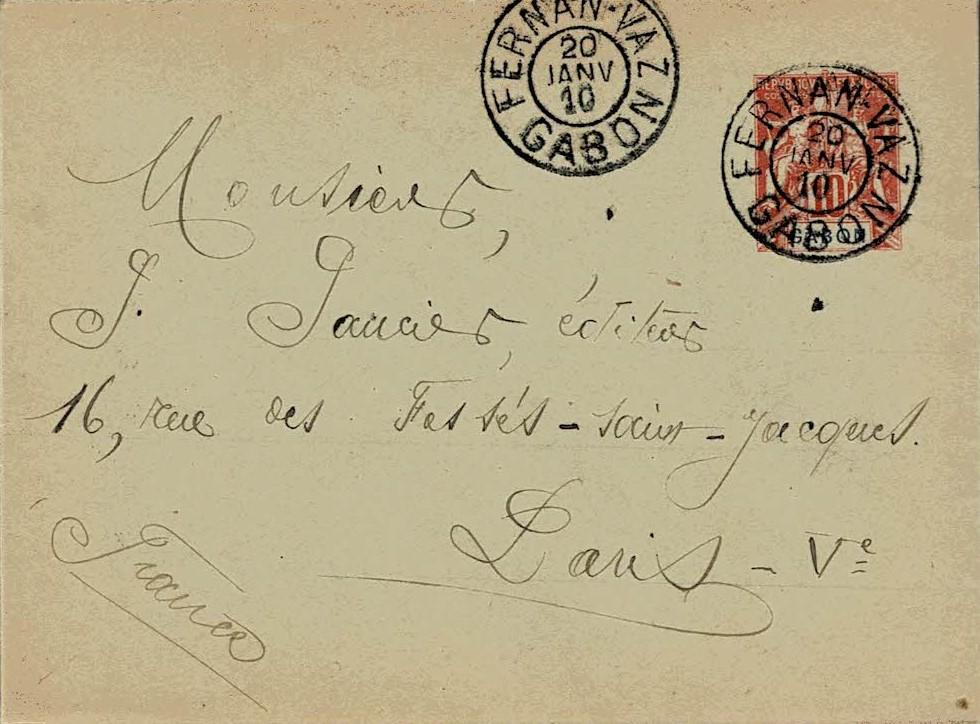 FERNAN-VAZ
20
JANV
10
GABON
FERNAN-VAZ
20
JANV
10
GABON
10
GABON
Monsieur,
éditeur
16, rue des Fossés-Saint-Jacques.
Paris - Ve
France